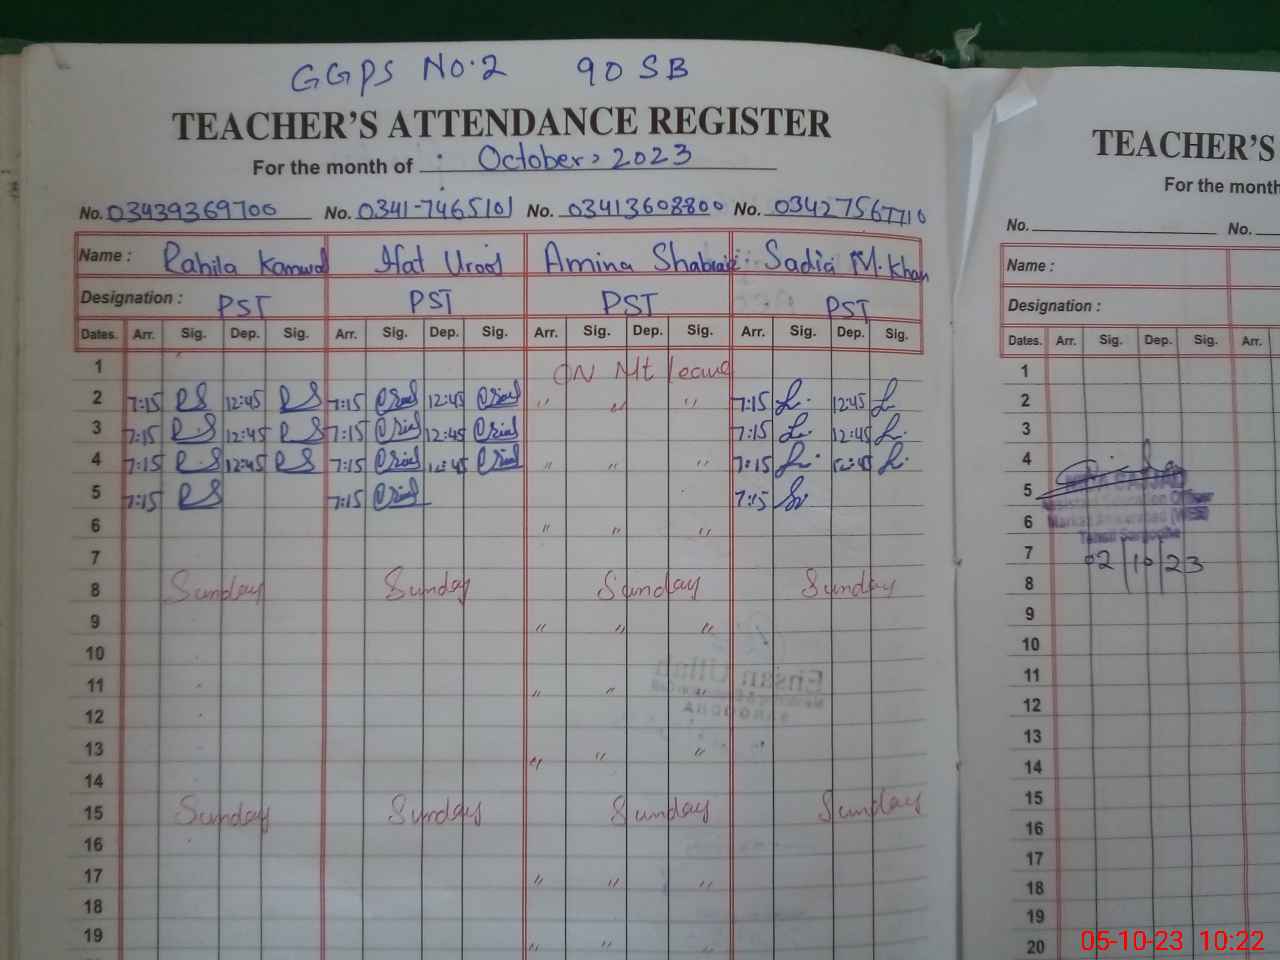 GGPS No.2 90 SB
TEACHER'S ATTENDANCE REGISTER
For the month of October, 2023
No. 03439369700 No. 0341-7465101 No. 03413608800 No. 03427567710
Name : Rahila Kanwal Ifat Urooj Amina Sadia M. Khan
Designation : PST PST PST PST
Dates. Arr. Sig. Dep. Sig. Arr. Sig. Dep. Sig. Arr. Sig. Dep. Sig. Arr. Sig. Dep. Sig.
1 ON Mt leave
2 7:15 RS 12:45 RS 7:15 12:45 " " " 7:15 12:45
3 7:15 RS 12:45 RS 7:15 12:45 7:15 12:45
4 7:15 RS 12:45 RS 7:15 12:45 " " " 7:15 12:45
5 7:15 RS 7:15 7:15
6 " " "
7
8 Sunday Sunday Sunday Sunday
9 " " "
10
11 " " "
12
13 " " "
14
15 Sunday Sunday Sunday Sunday
16
17 " " "
18
19 " " "
TEACHER'S
For the month
No. No.
Name :
Designation :
Dates. Arr. Sig. Dep. Sig. Arr.
1
2
3
4
5
6
7
8
9
10
11
12
13
14
15
16
17
18
19
20
Assistant Education Officer
Tehsil Sargodha
02/10/23
05-10-23 10:22